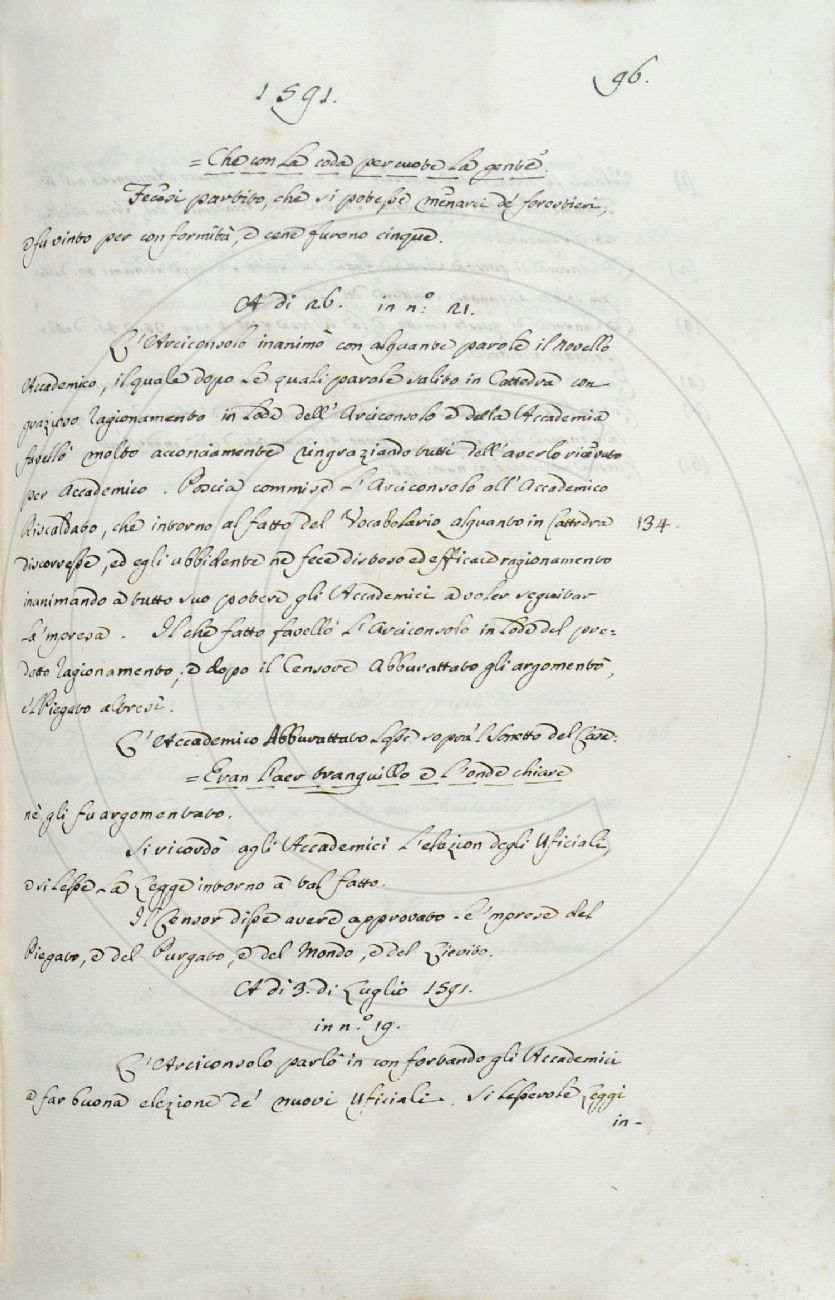 96.
1591.
= Che con la coda percuote la gente.
Fecesi partito, che si potesse menarci de' forestieri,
e fu vinto per conformità, e cene furono cinque.
A di 26. in n.° 21.
L'Arciconsolo inanimò con alquante parole il novello
Accademico, il quale dopo le quali parole salito in Cattedra con
grazioso ragionamento in lode dell'Arciconsolo e della Accademia
favellò molto acconciamente ringraziando tutti dell'averlo ricevuto
per Accademico. Poscia commise l'Arciconsolo all'Accademico
Riscaldato, che intorno al fatto del Vocabolario alquanto in Cattedra 134.
discorresse, ed egli ubbidente ne fece disteso ed efficace ragionamento
inanimando a tutto suo potere gli Accademici a voler seguitar
la 'mpresa. Il che fatto favellò l'Arciconsolo in lode del pre=
detto ragionamento, e dopo il Censore Abburattato gli argomentò,
e'l Piegato altresì.
L'Accademico Abburattato lesse sopra 'l Sonetto del Case:
= Eran l'aer tranquillo e l'onde chiare
nè gli fu argomentato.
Si ricordò agli Accademici l'elezion degli Uficiali,
e si lesse la Legge intorno a tal fatto.
Il Censor disse avere approvato le 'mprese del
Piegato, e del Purgato, e del Mondo, e del Lievito.
A di 3. di Luglio 1591.
in n.° 19.
L'Arciconsolo parlò in confortando gli Accademici
a far buona elezione de' nuovi Uficiali. Si lesser le Leggi
in-